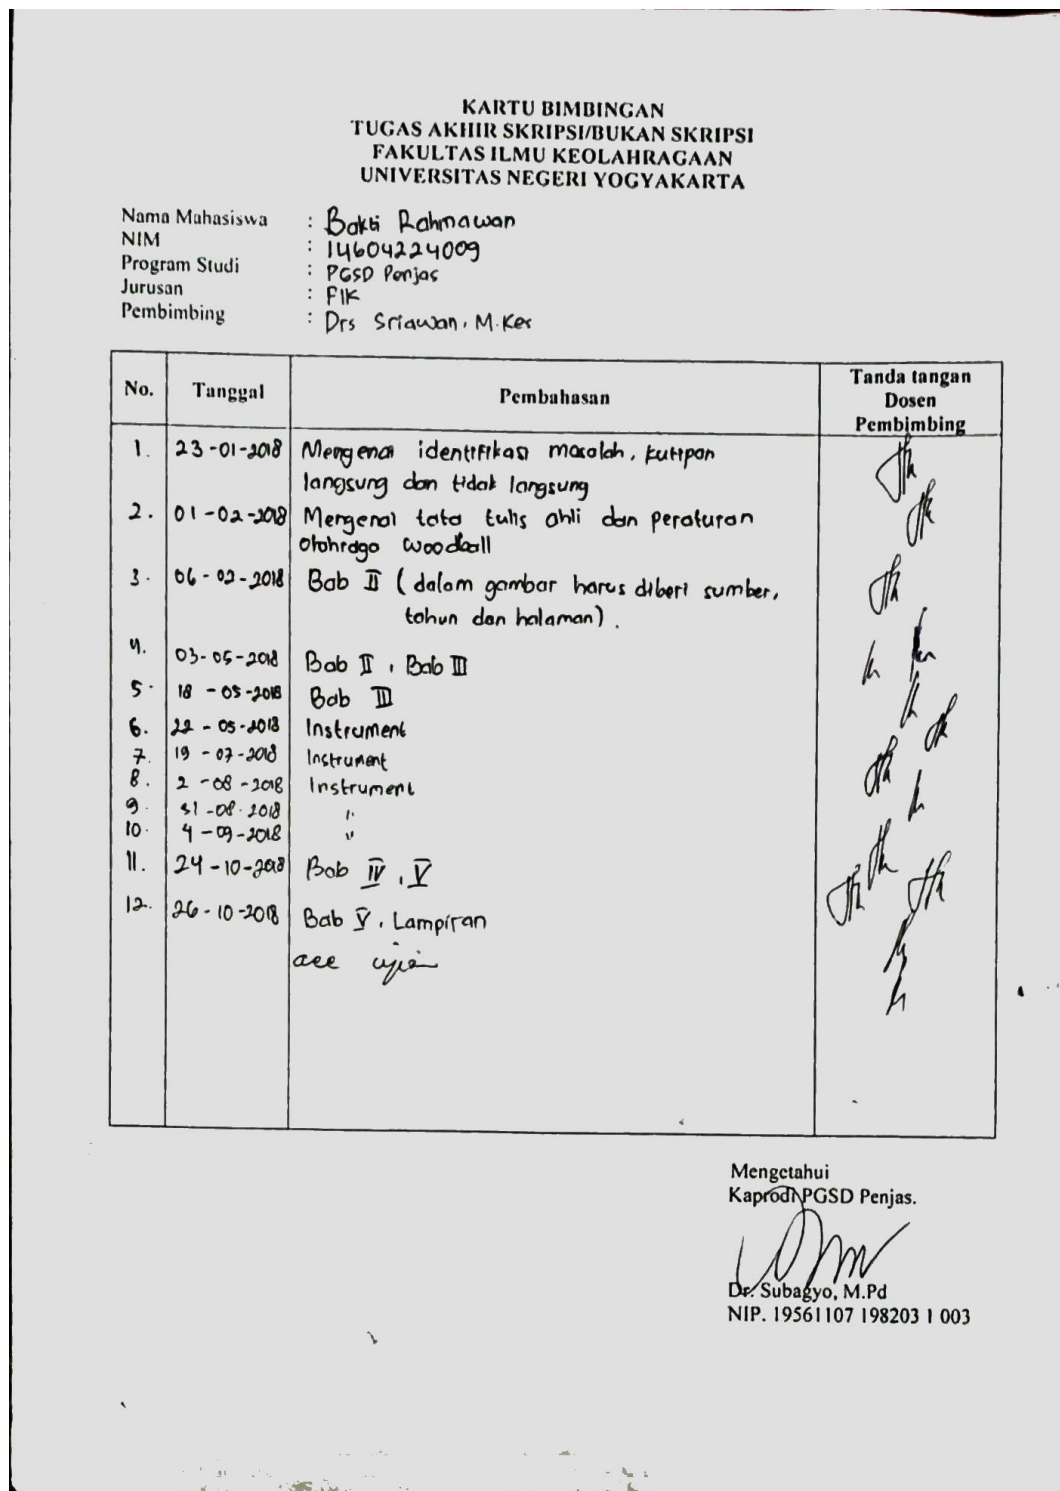 KARTU BIMBINGAN
TUGAS AKHIR SKRIPSI/BUKAN SKRIPSI
FAKULTAS ILMU KEOLAHRAGAAN
UNIVERSITAS NEGERI YOGYAKARTA
Nama Mahasiswa : Bakti Rahmawan
NIM : 14604224009
Program Studi : PGSD Penjas
Jurusan : FIK
Pembimbing : Drs Sriawan, M.Kes
No. Tanggal Pembahasan Tanda tangan Dosen Pembimbing
1. 23-01-2018 Mengenai identifikasi masalah, kutipan
langsung dan tidak langsung
2. 01-02-2018 Mengenai tata tulis ahli dan peraturan
olahraga woodball
3. 06-02-2018 Bab II (dalam gambar harus diberi sumber,
tahun dan halaman).
4. 03-05-2018 Bab II, Bab III
5. 18-05-2018 Bab III
6. 22-05-2018 Instrument
7. 19-07-2018 Instrument
8. 2-08-2018 Instrument
9. 31-08-2018 "
10. 4-09-2018 "
11. 24-10-2018 Bab IV, V
12. 26-10-2018 Bab V, Lampiran
acc ujian
Mengetahui
Kaprodi PGSD Penjas.
Dr. Subagyo, M.Pd
NIP. 19561107 198203 1 003